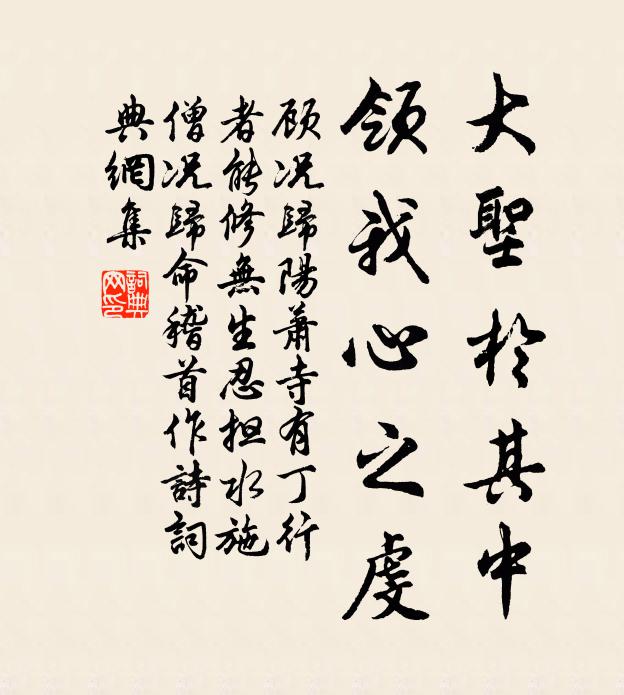 大聖於其中
領我心之虔
顾况歸陽蕭寺有丁行
者能修無生忍担水施
僧况歸命稽首作詩詞
典網集
詞典
网印